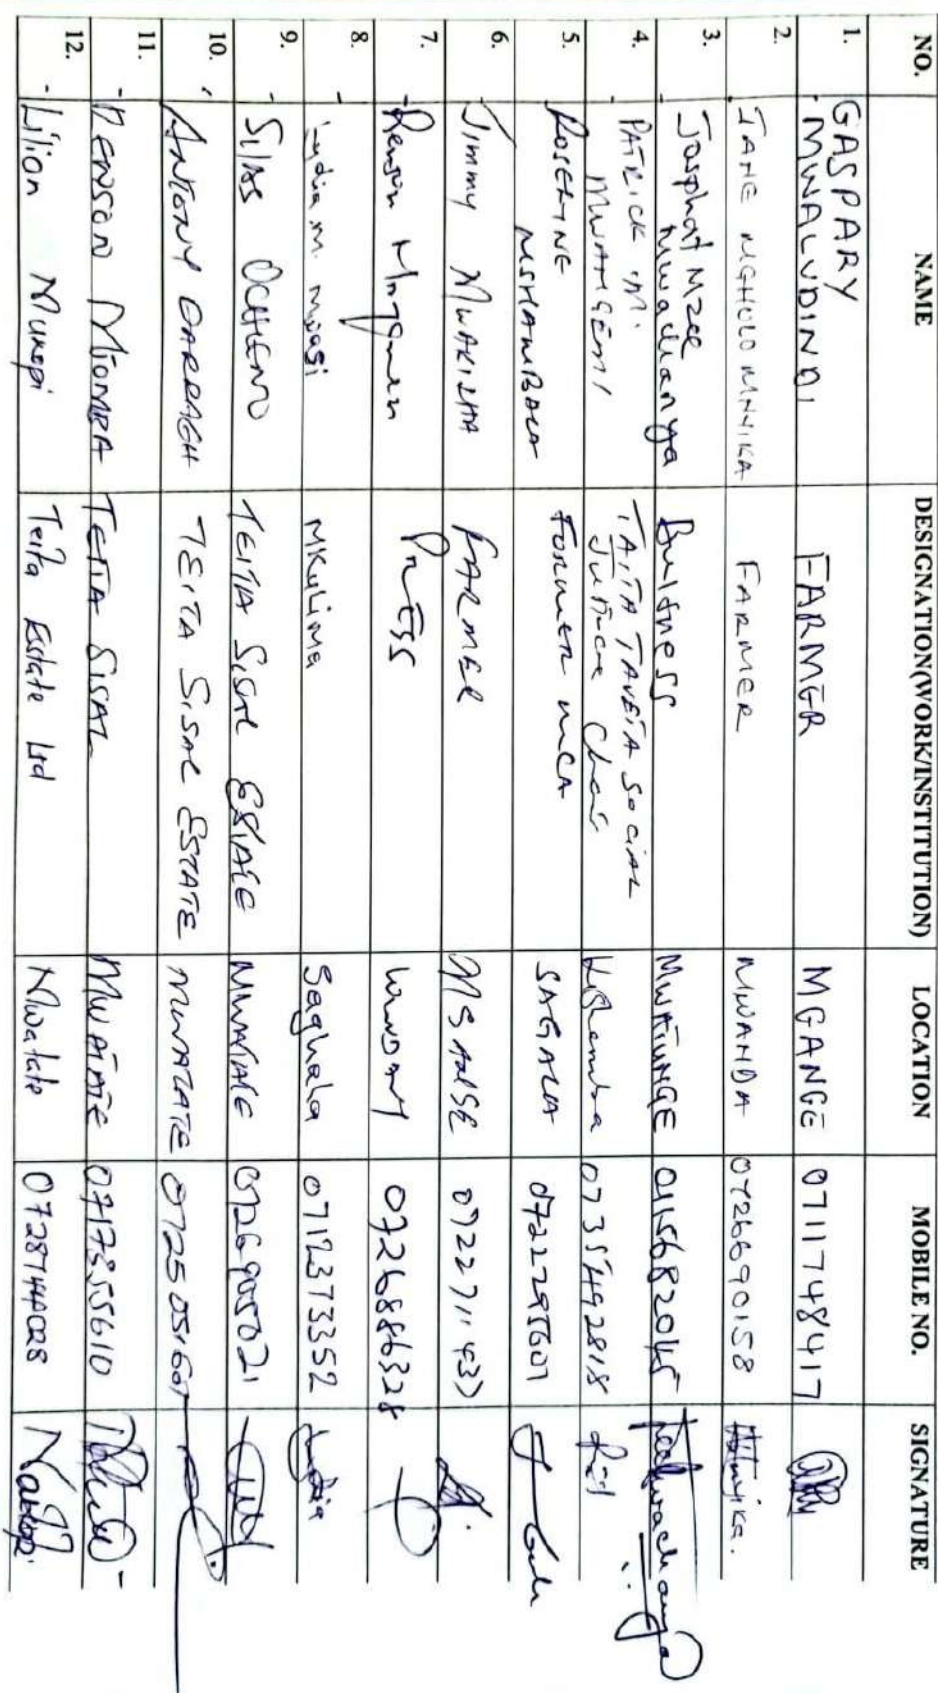 NO. NAME DESIGNATION(WORK/INSTITUTION) LOCATION MOBILE NO. SIGNATURE
1. GASPARY MWALUDINDI FARMER MGANGE 0711748417
2. JANE MGHOLO MNYIKA FARMER MWANDA 0726690158 Mnyika.
3. Josphat Mzee Mwadianga Business 0115682045
4. PATRICK M. MWANGEMI TAITA TAVETA SOCIAL Justice Chair 0735492818
5. ROSELYNE MSHAMBALA FORMER MCA SAGALLA 0722295607
6. Jimmy MWAKISHA FARMER
7. PRESS WUNDANYI 0726886328
8. Lydia m. mwasi MKulima Saghala 0712373352 Lydia
9. SILAS OCHIENO TEITA SISAL ESTATE MWATATE 0726905021
10. ANTONY DARRAGH TEITA SISAL ESTATE MWATATE
11. TEITA SISAL MWATATE 0717355610
12. Lilion Teita Estate Ltd Mwatate